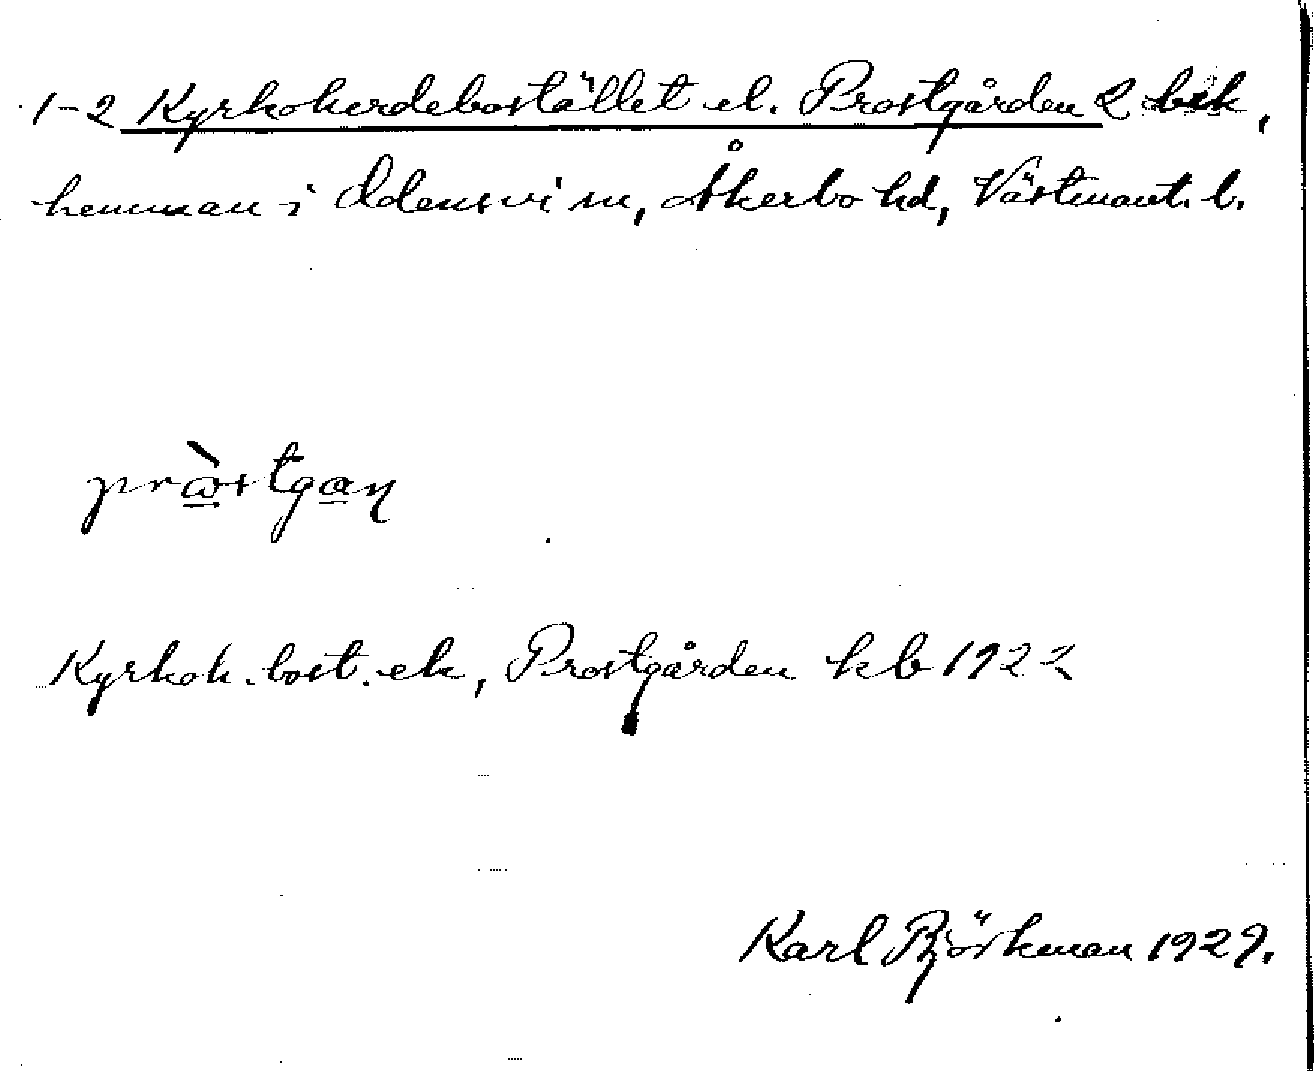 1-2 Kyrkoherdebostället el. Prostgården 2 bek,
hemman i Odensvi sn, Åkerbo hd, Västmanl. l.
pròstgan
Kyrkoh.bost. ek, Prostgården kb 1922
Karl Björkman 1929.